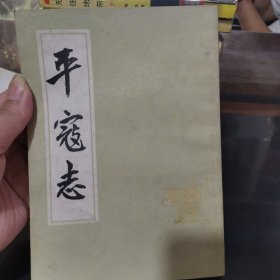 平寇志